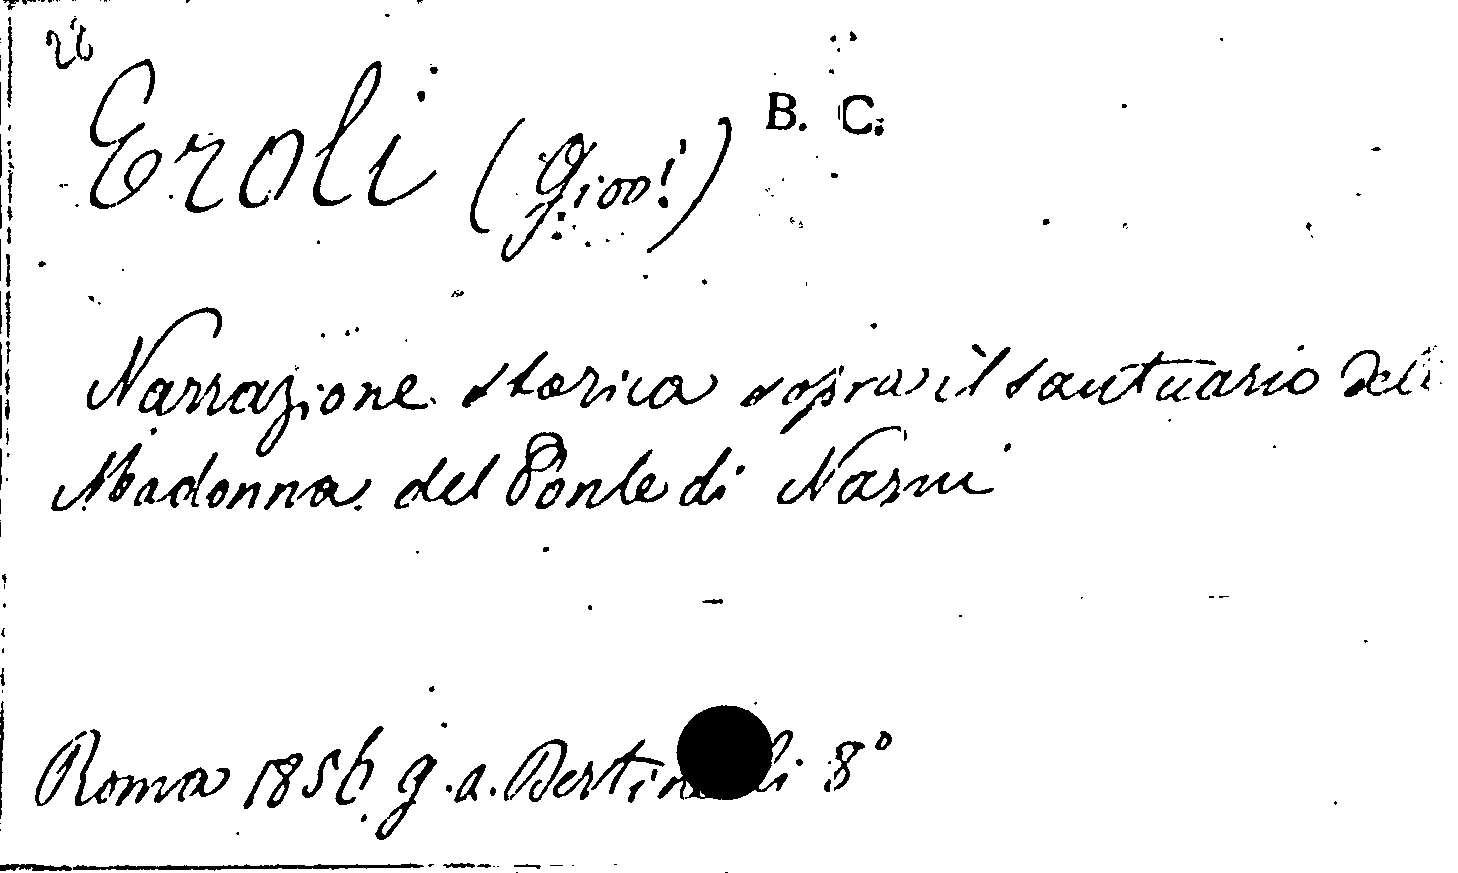 26
Eroli (Giov!) B. C.
Narrazione storica sopra il santuario dell
Madonna del Ponte di Narni
Roma 1856 g. a. 8°